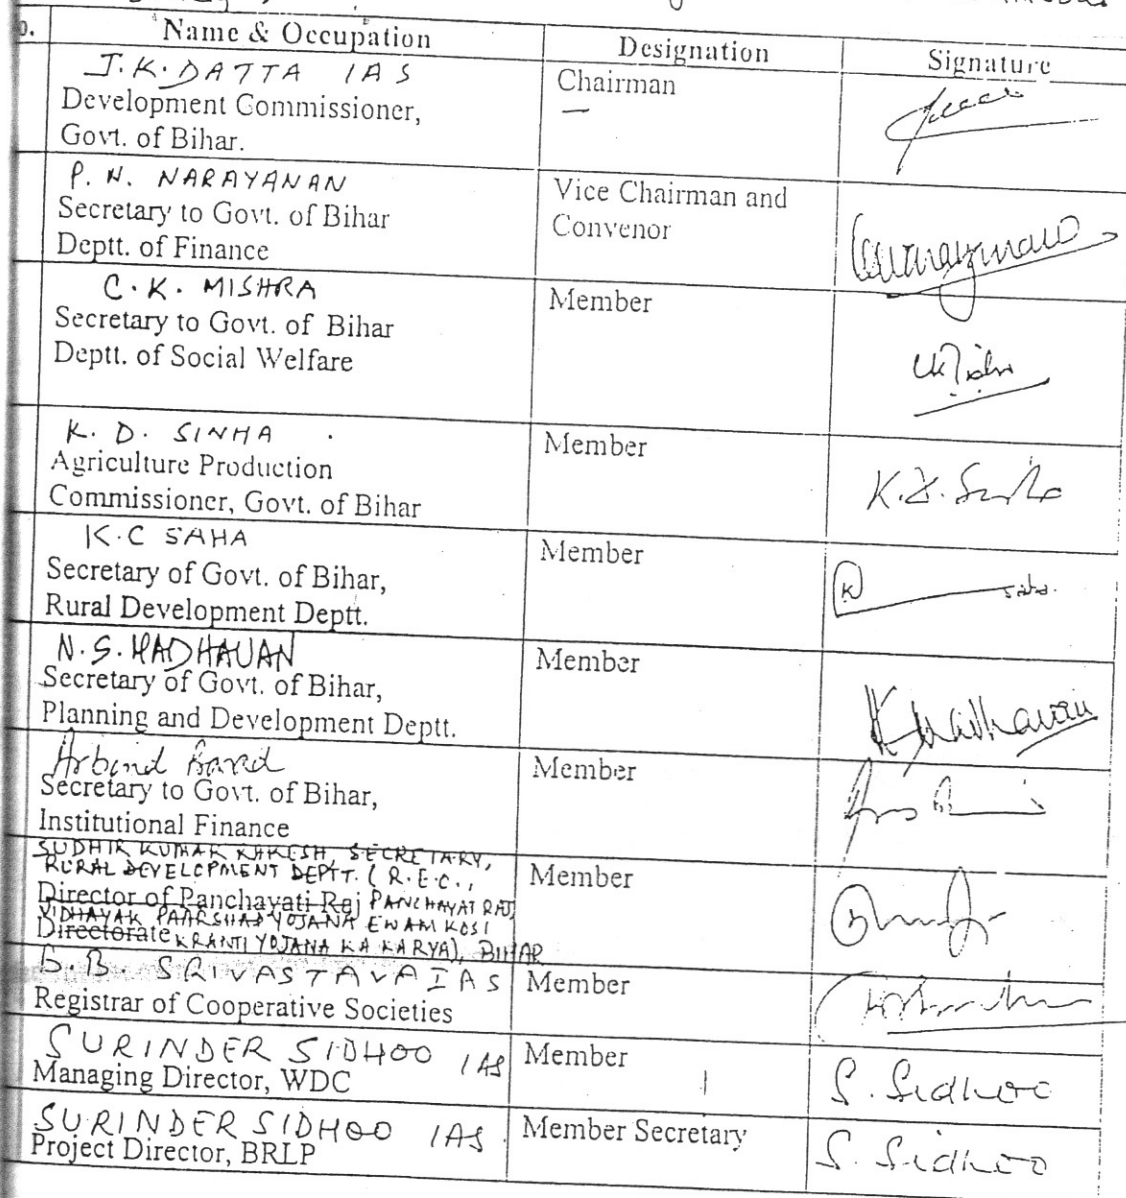 Name & Occupation Designation Signature
J.K. DATTA IAS
Development Commissioner,
Govt. of Bihar.
Chairman
P. N. NARAYANAN
Secretary to Govt. of Bihar
Deptt. of Finance
Vice Chairman and
Convenor
C.K. MISHRA
Secretary to Govt. of Bihar
Deptt. of Social Welfare
Member
K. D. SINHA
Agriculture Production
Commissioner, Govt. of Bihar
Member
K.D. Sinha
K.C SAHA
Secretary of Govt. of Bihar,
Rural Development Deptt.
Member
K Saha.
N.S. MADHAVAN
Secretary of Govt. of Bihar,
Planning and Development Deptt.
Member
Madhavan
Arbind
Secretary to Govt. of Bihar,
Institutional Finance
Member
SUDHIR KUMAR RAKESH, SECRETARY,
RURAL DEVELOPMENT DEPTT. (R.E.O.,
Director of Panchayati Raj PANCHAYAT RAJ,
VIDHAYAK PAARSHAD YOJANA EWAM KOSI
Directorate KRANTI YOJANA KA KARYA), BIHAR
Member
SRIVASTAVA IAS
Registrar of Cooperative Societies
Member
SURINDER SIDHOO IAS
Managing Director, WDC
Member
S. Sidhoo
SURINDER SIDHOO IAS
Project Director, BRLP
Member Secretary
S. Sidhoo